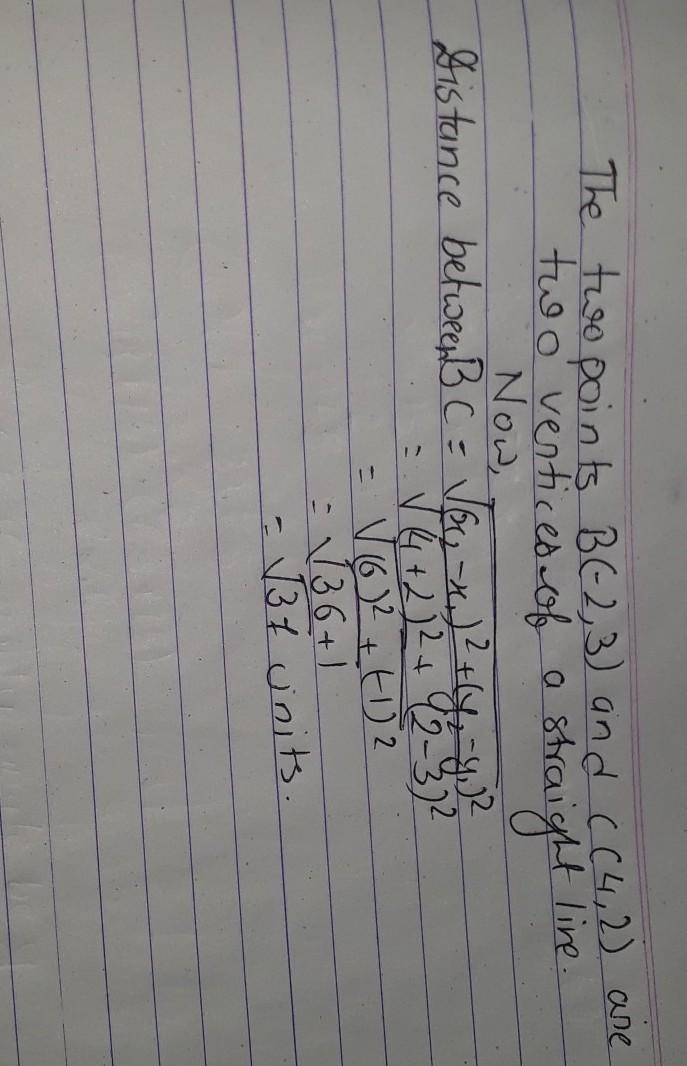 The two points B(-2,3) and C(4,2) are
two vertices of a straight line.
Now,
Distance between BC = √(x₂-x₁)²+(y₂-y₁)²
= √(4+2)²+(2-3)²
= √(6)²+(-1)²
= √36+1
= √37 units.